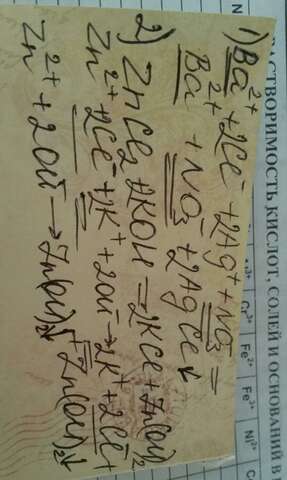 РАСТВОРИМОСТЬ КИСЛОТ, СОЛЕЙ И ОСНОВАНИЙ В
1) Ba²⁺ + 2Cl⁻ + 2Ag⁺ + NO₃⁻ =
Ba²⁺ + NO₃⁻ + 2AgCl↓
2) ZnCl₂ + 2KOH = 2KCl + Zn(OH)₂
Zn²⁺ + 2Cl⁻ + 2K⁺ + 2OH⁻ → 2K⁺ + 2Cl⁻ +
+ Zn(OH)₂↓
Zn²⁺ + 2OH⁻ → Zn(OH)₂↓
Cr³⁺
Fe²⁺
Fe³⁺
Ni²⁺